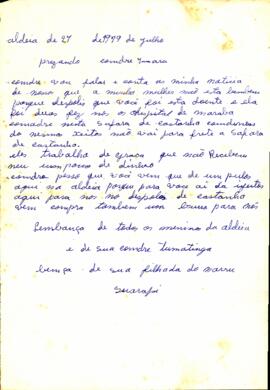 aldeia de 27 de 1979 de julho
prezando comdre
comdre vou falar e conta as minha noticia
de novo que a minha mulher não esta bem
porque despois que você foi esta doente e ela
foi duas fez no os ospital de maraba
comadre nesta Safara de castanha
do mesmo xeito não vai para frete a Safara
de castanha.
eles trabalha de graça que não Recebem
nem um poco de dinhero
comdre peso que você vem que de um pulos
aqui na aldeia porque para você
aqui para nos no deposto de castanha
vem compra tambem um para nós
Lembança de todos os menino da aldeia
e de sua comdre Tumatinga
bença de sua filhada do marru